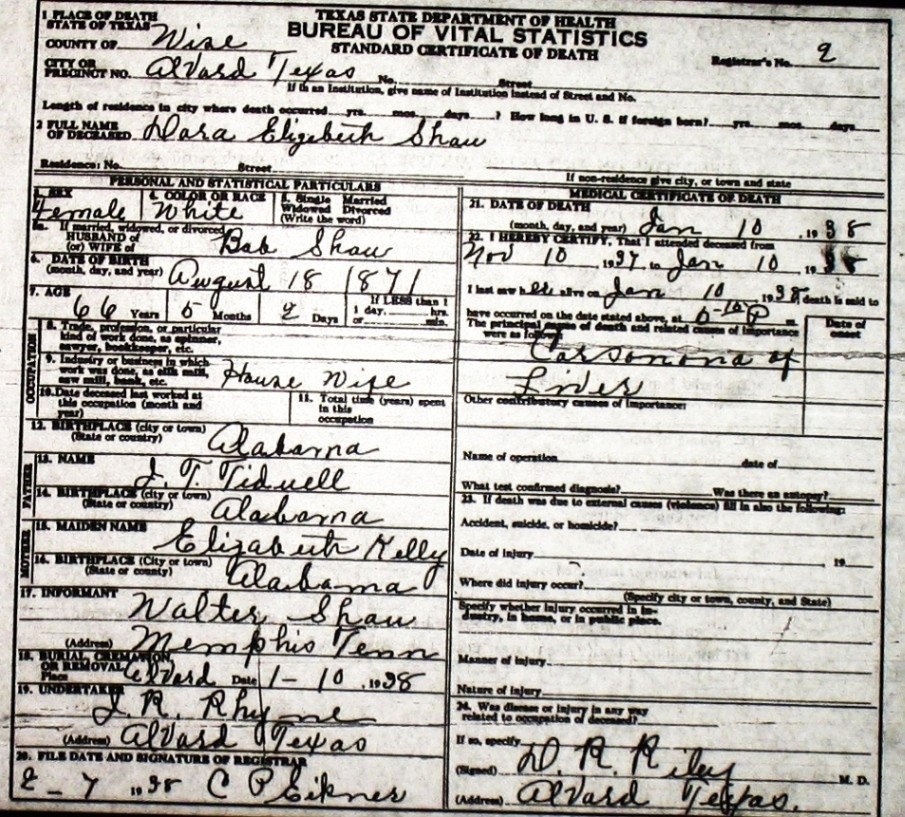 TEXAS STATE DEPARTMENT OF HEALTH
BUREAU OF VITAL STATISTICS
STANDARD CERTIFICATE OF DEATH
1 PLACE OF DEATH
STATE OF TEXAS
COUNTY OF Wise
Registrar's No. 2
CITY OR PRECINCT NO. Alvard Texas No. Street
If in an Institution, give name of Institution instead of Street and No.
Length of residence in city where death occurred yrs. mos. days ? How long in U. S. if foreign born? yrs. mos. days
2 FULL NAME OF DECEASED Dora Elizebeth Shaw
Residence: No. Street
If non-residence give city, or town and state
PERSONAL AND STATISTICAL PARTICULARS
3. SEX Female
4. COLOR OR RACE White
5. Single Married Widowed Divorced (Write the word)
5a. If married, widowed, or divorced HUSBAND of (or) WIFE of Bob Shaw
6. DATE OF BIRTH (month, day, and year) August 18 1871
7. AGE 66 Years 5 Months 2 Days If LESS than 1 day, hrs. or min.
OCCUPATION
8. Trade, profession, or particular kind of work done, as spinner, sawyer, bookkeeper, etc.
9. Industry or business in which work was done, as silk mill, saw mill, bank, etc. House Wife
10. Date deceased last worked at this occupation (month and year)
11. Total time (years) spent in this occupation
12. BIRTHPLACE (city or town) (State or country) Alabama
FATHER
13. NAME J. T. Tidwell
14. BIRTHPLACE (city or town) (State or country) Alabama
MOTHER
15. MAIDEN NAME Elizabeth Kelly
16. BIRTHPLACE (City or town) (State or county) Alabama
17. INFORMANT Walter Shaw
(Address) Memphis Tenn
18. BURIAL, CREMATION OR REMOVAL
Place Alvard Date 1-10, 1938
19. UNDERTAKER J. R. Rhyne
(Address) Alvard Texas
20. FILE DATE AND SIGNATURE OF REGISTRAR
2-7 1938 C P Eikner
MEDICAL CERTIFICATE OF DEATH
21. DATE OF DEATH
(month, day, and year) Jan 10, 1938
22. I HEREBY CERTIFY, That I attended deceased from
Nov 10 1937, to Jan 10, 1938
I last saw her alive on Jan 10 1938, death is said to
have occurred on the date stated above, at m.
The principal cause of death and related causes of importance were as follows:
Date of onset
Carsonona of
Liver
Other contributory causes of importance:
Name of operation date of
What test confirmed diagnosis? Was there an autopsy?
23. If death was due to external causes (violence) fill in also the following:
Accident, suicide, or homicide?
Date of injury 19
Where did injury occur?
(Specify city or town, county, and State)
Specify whether injury occurred in industry, in home, or in public place.
Manner of injury
Nature of injury
24. Was disease or injury in any way related to occupation of deceased?
If so, specify
(Signed) D. R. Riley M. D.
(Address) Alvard Texas.